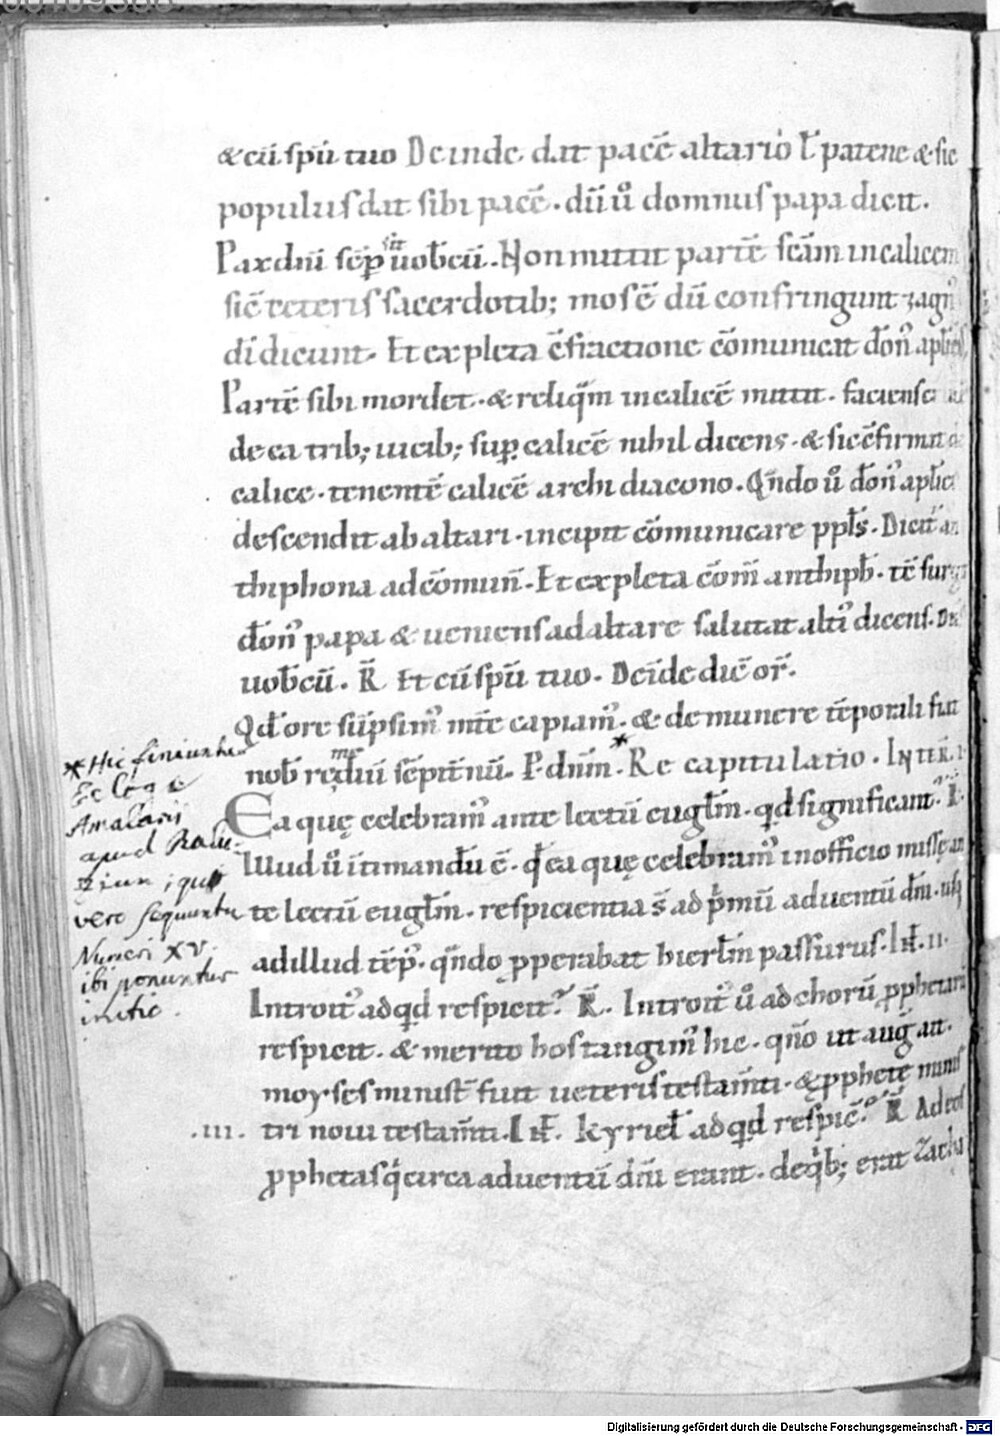 &cū spū tuo Deinde dat pacē altario ł patene & sic
populus dat sibi pacē. dū ů domnus papa dicit.
Pax dn̄i sēp sit uobcū. Non mittit partē scām in calicem
sic̄ ceteris sacerdotib; mos ē dū confringunt
di dicunt. Et expleta c̄fractione cōmunicat don̄
Partē sibi mordet. & reliqūm in calicē mittit. faciens
de ea trib; uicib; sup calicē nihil dicens. & sic c̄firmat
calice. tenentē calicē archidiacono. Qn̄do ů don̄
descendit ab altari. incipit cōmunicare ppłs. Dicit an
thiphona ad cōmun̄. Et expleta cōm̄ anthiph. tē surg
don̄ papa & ueniens ad altare salutat alt̄ dicens.
uobcū. R̄ Et cū spū tuo. Deīde dic̄ or̄.
Qd ore sūpsim̉ mīte capiam̉. & de munere tēporali fiat
nob remediū sēpit̄nū. P. dn̄m. * Recapitulatio. INTR.
Ea quę celebram̉ ante lectū euglm̄. qd significant?
Illud ů ītimandū ē. qd ea quę celebram̉ in officio missę an
te lectū euglm̄. respicientia s̄ ad p̄mū aduentū dn̄i. usq
ad illud tēp̉. qn̄do pperabat hierlm̄ passurus. INT. II.
Introit̉ ad qd respicit? R̄. Introit̉ ů ad chorū pphetarū
respicit. & merito hos tangim̉ hic. qn̄o ut auḡ ait.
moyses minist̄ fuit ueteris testam̄ti. & pphetę minis
.III. tri noui testam̄ti. INT. Kyriel̄ ad qd respic̄? R̄ Ad eos
pphetas q̄ circa aduentū dn̄i erant. de qb; erat Zacha
* Hic finiuntur
Eclogae
Amalarii
apud Balu-
zium; quæ
vero sequuntur
Numeri XV.
ibi ponuntur
initio.
Digitalisierung gefördert durch die Deutsche Forschungsgemeinschaft - DFG